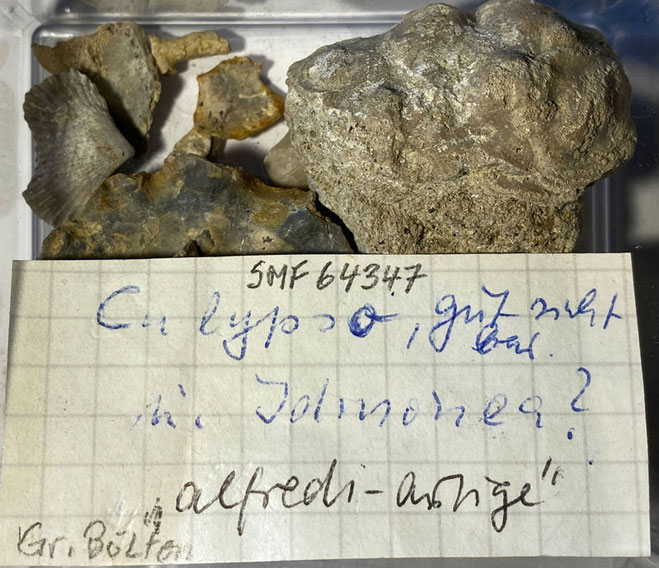 SMF 64347
Calypso, gut sicht
bar.
u. Idmonea?
„alfredi-artige"
Gr. Bülten